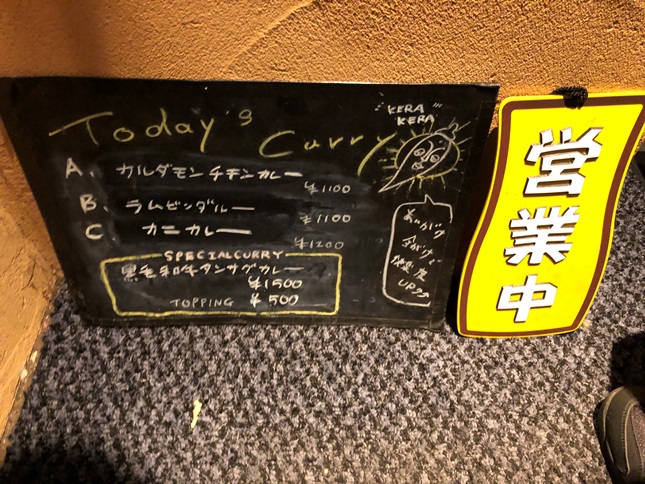 Today's Curry
"KERA
KERA"
A. カルダモンチキンカレー
¥1100
B. ラムビンダルー
¥1100
C カニカレー
¥1200
SPECIALCURRY
黒毛和牛タンサグカレー
¥1500
TOPPING ¥500
UP
営業中